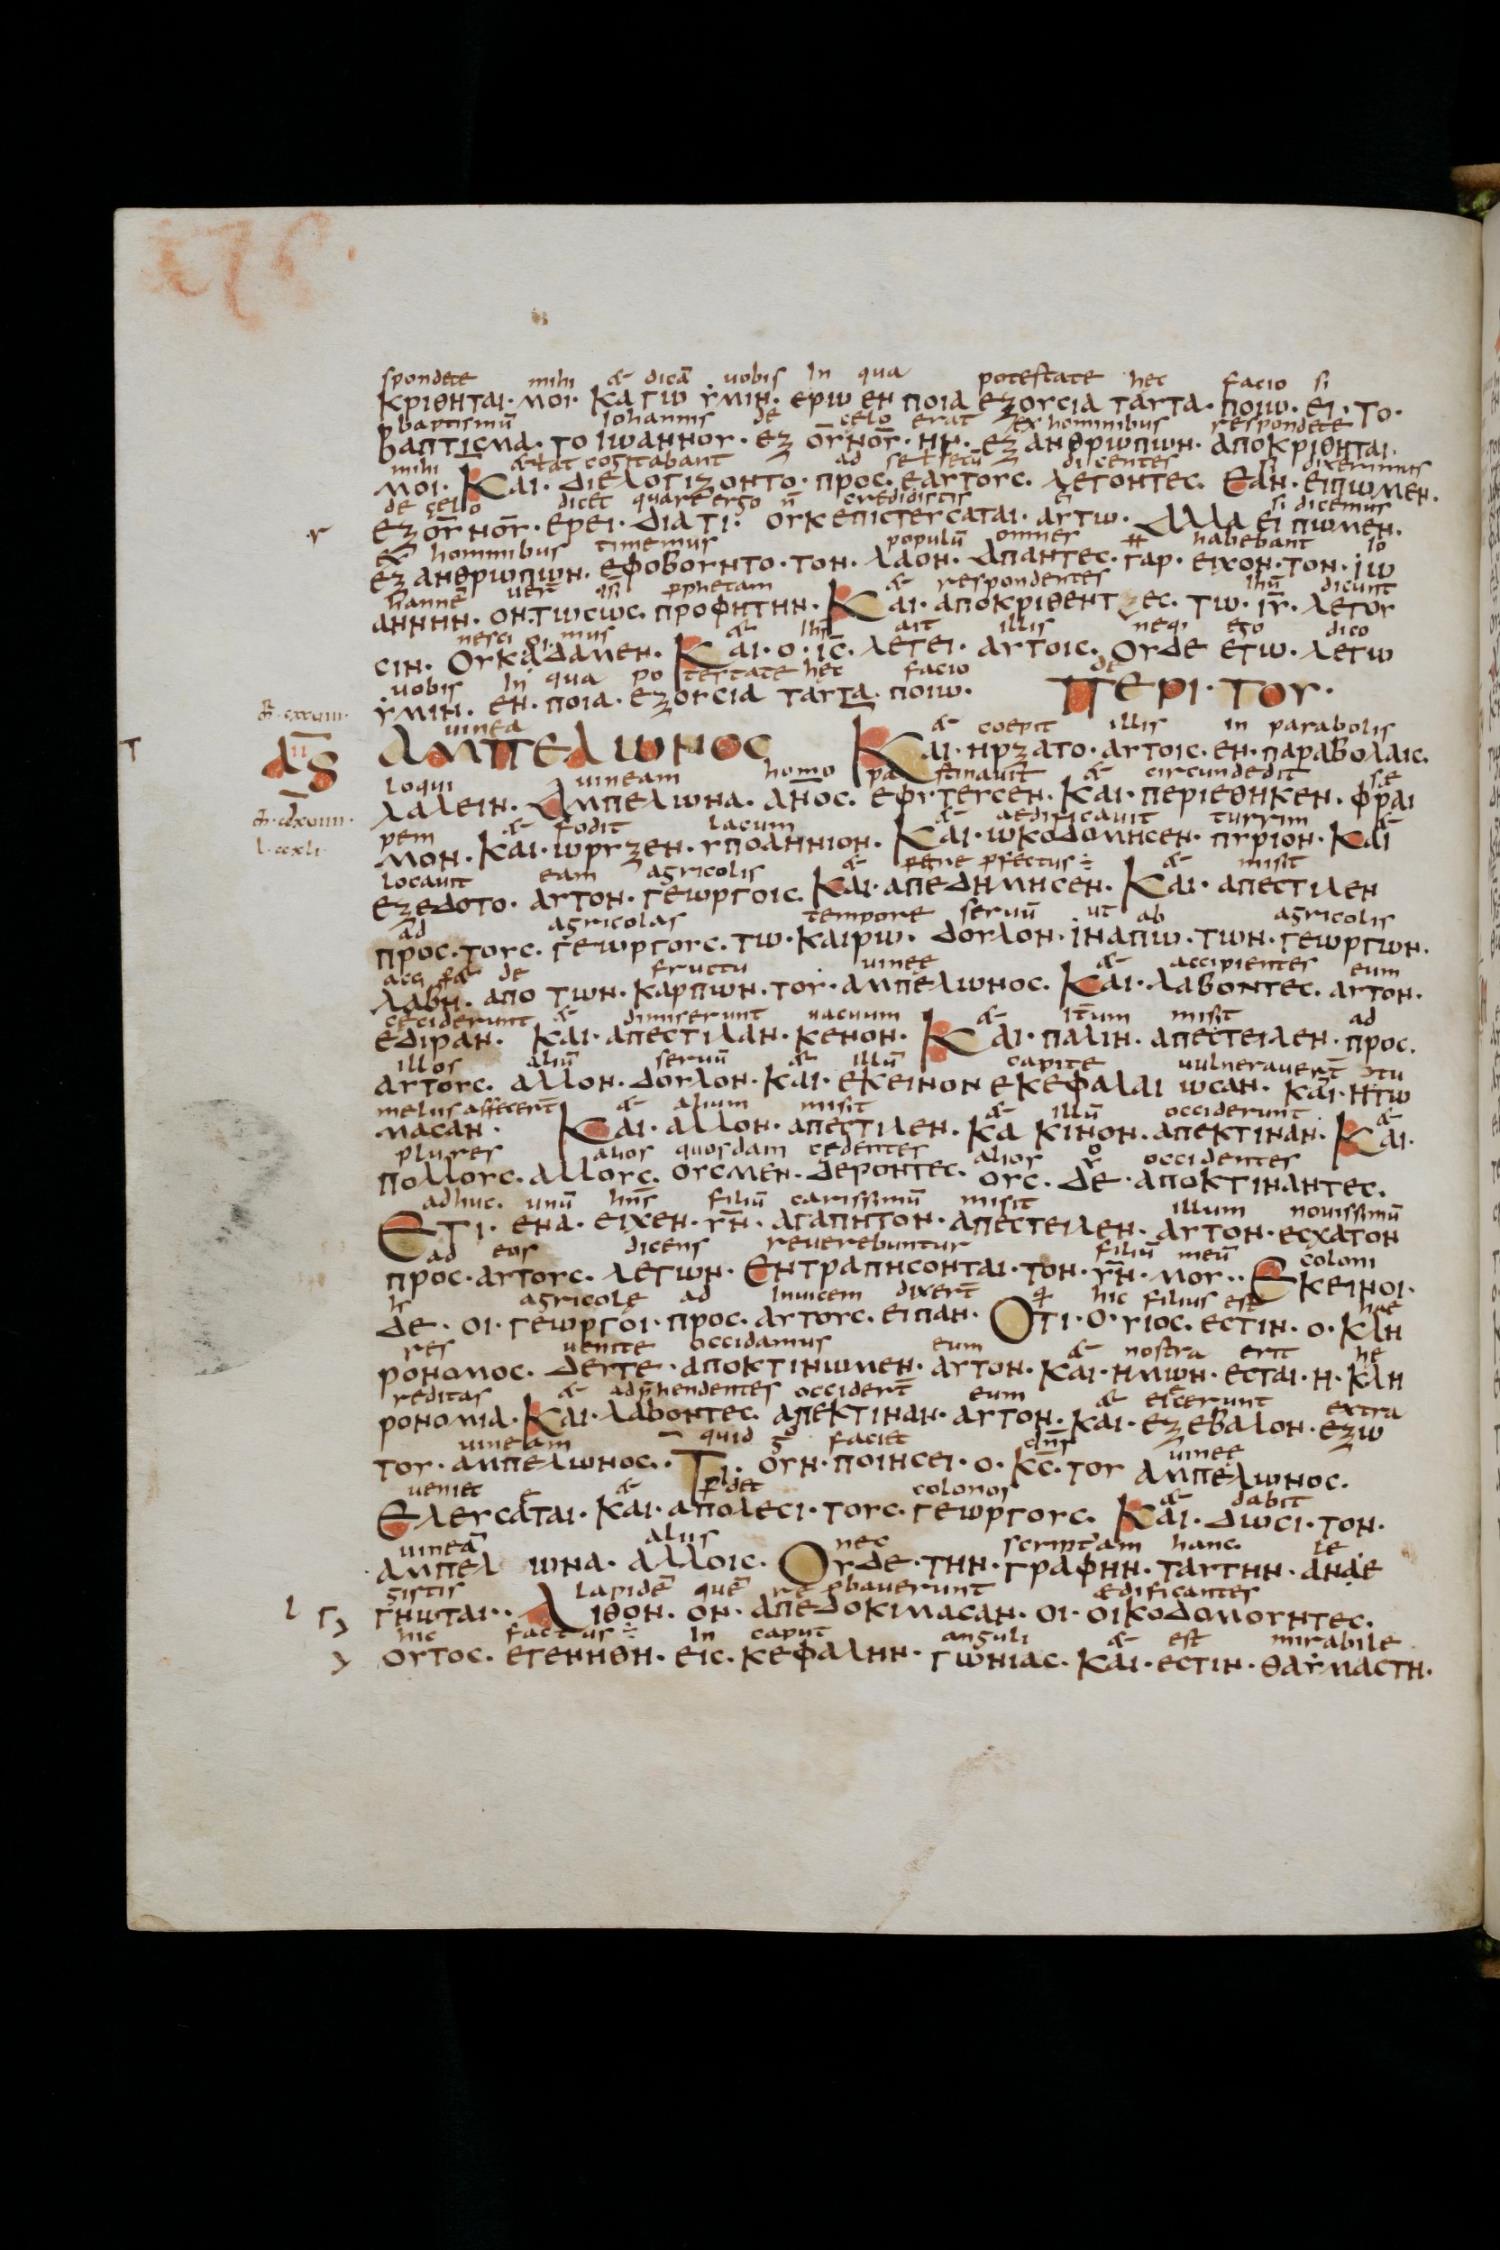 176.
spondete mihi & dicā uobis In qua potestate hec facio si
ΚΡΙΘΗΤΑΙ· ΜΟΙ· ΚΑΓΩ ΥΜΙΝ· ΕΡΩ ΕΝ ΠΟΙΑ ΕΞΟΥCΙΑ ΤΑΥΤΑ· ΠΟΙΩ· ΕΙ· ΤΟ·
baptismū Iohannis de celo erat ex hominibus respondete
ΒΑΠΤΙCΜΑ· ΤΟ ΙΩΑΝΝΟΥ· ΕΞ ΟΥ̅ΝΟΥ̅· ΗΝ· ΕΞ ΑΝΘΡΩΠΩΝ· ΑΠΟΚΡΙΘΗΤΑΙ·
mihi cogitabant ad secū dicentes si dixerimus
ΜΟΙ· ΚΑΙ· ΔΙΕΛΟΓΙΖΟΝΤΟ· ΠΡΟC· ΕΑΥΤΟΥC· ΛΕΓΟΝΤΕC· ΕΑΝ· ΕΙΠΩΜΕΝ·
de celo dicet quare ergo n̄ credidistis ei si dicemus
ΕΞ ΟΥ̅ΝΟΥ̅· ΕΡΕΙ· ΔΙΑ ΤΙ· ΟΥΚ ΕΠΙCΤΕΥCΑΤΑΙ· ΑΥΤΩ· ΑΛΛΑ ΕΙΠΩΜΕΝ·
ex hominibus timemus populū omnes habebant Io
ΕΞ ΑΝΘΡΩΠΩΝ· ΕΦΟΒΟΥΝΤΟ· ΤΟΝ· ΛΑΟΝ· ΑΠΑΝΤΕC· ΓΑΡ· ΕΙΧΟΝ· ΤΟΝ· ΙΩ
hannē uer̄ prophetam & respondentes ihū dicunt
ΑΝΝΗΝ· ΟΝΤΩCΩC· ΠΡΟΦΗΤΗΝ· ΚΑΙ· ΑΠΟΚΡΙΘΕΝΤΕC· ΤΩ· ΙΥ̅· ΛΕΓΟΥ
nescimus & ihs ait illis neq; ego dico
CΙΝ· ΟΥΚ ΔΑΜΕΝ· ΚΑΙ· Ο· ΙC̅· ΛΕΓΕΙ· ΑΥΤΟΙC· ΟΥΔΕ ΕΓΩ· ΛΕΓΩ
uobis In qua potestate hec facio de
ΥΜΙΝ· ΕΝ· ΠΟΙΑ· ΕΞΟΥCΙΑ ΤΑΥΤΑ· ΠΟΙΩ· ΠΕΡΙ· ΤΟΥ·
uinea & coepit illis in parabolis
ΑΜΠΕΛΩΝΟC ΚΑΙ· ΗΡΞΑΤΟ· ΑΥΤΟΙC· ΕΝ· ΠΑΡΑΒΟΛΑΙC·
loqui uineam homo pastinauit & circundedit se
ΛΑΛΕΙΝ· ΑΜΠΕΛΩΝΑ· ΑΝ̅ΟC· ΕΦΥΤΕΥCΕΝ· ΚΑΙ· ΠΕΡΙΕΘΗΚΕΝ· ΦΡΑΓ
pem & fodit lacum & aedificauit turrim &
ΜΟΝ· ΚΑΙ· ΩΡΥΞΕΝ· ΥΠΟΛΗΝΙΟΝ· ΚΑΙ· ΩΚΟΔΟΜΗCΕΝ· ΠΥΡΙΟΝ· ΚΑΙ
locauit eam agricolis & pegre pfectus & misit
ΕΞΕΔΟΤΟ· ΑΥΤΟΝ· ΓΕΩΡΓΟΙC· ΚΑΙ· ΑΠΕΔΗΜΗCΕΝ· ΚΑΙ· ΑΠΕCΤΙΛΕΝ
ad agricolas tempore seruū ut ab agricolis
ΠΡΟC· ΤΟΥC· ΓΕΩΡΓΟΥC· ΤΩ· ΚΑΙΡΩ· ΔΟΥΛΟΝ· ΙΝΑΠΩ· ΤΩΝ· ΓΕΩΡΓΩΝ·
de fructu uinee & accipientes eum
ΛΑΒΗ· ΑΠΟ ΤΩΝ· ΚΑΡΠΩΝ· ΤΟΥ· ΑΜΠΕΛΩΝΟC· ΚΑΙ· ΛΑΒΟΝΤΕC· ΑΥΤΟΝ·
ceciderunt & dimiserunt uacuum & it̄um misit ad
ΕΔΙΡΑΝ· ΚΑΙ· ΑΠΕCΤΙΛΑΝ· ΚΕΝΟΝ· ΚΑΙ· ΠΑΛΙΝ· ΑΠΕCΤΕΙΛΕΝ· ΠΡΟC·
illos aliū seruū & illū capite uulnerauer̄ ↄtu
ΑΥΤΟΥC· ΑΛΛΟΝ· ΔΟΥΛΟΝ· ΚΑΙ· ΕΚΕΙΝΟΝ ΕΚΕΦΑΛΑΙ ΩCΑΝ· ΚΑΙ· ΗΤΙΩ
melijs affecer̄ & alium misit & illū occiderunt &
ΜΑCΑΝ· ΚΑΙ· ΑΛΛΟΝ· ΑΠΕCΤΙΛΕΝ· ΚΑ ΚΙΝΟΝ· ΑΠΕΚΤΙΝΑΝ· ΚΑΙ·
plures alios quosdam cedentes alios occidentes
ΠΟΛΛΟΥC· ΑΛΛΟΥC· ΟΥCΜΕΝ· ΔΕΡΟΝΤΕC· ΟΥC· ΔΕ· ΑΠΟΚΤΙΝΑΝΤΕC·
adhuc· unū hn̄s filiū carissimū misit illum nouissimū
ΕΤΙ· ΕΝΑ· ΕΙΧΕΝ· ΥΝ̅· ΑΓΑΠΗΤΟΝ· ΑΠΕCΤΕΙΛΕΝ· ΑΥΤΟΝ· ΕCΧΑΤΟΝ
ad eos dicens reuerebuntur filiū meū coloni
ΠΡΟC· ΑΥΤΟΥC· ΛΕΓΩΝ· ΕΝΤΡΑΠΗCΟΝΤΑΙ· ΤΟΝ· ΥΝ̅· ΜΟΥ·· ΕΚΕΙΝΟΙ·
agricole ad Inuicem dixer̄t hic filius est her
ΔΕ· ΟΙ· ΓΕΩΡΓΟΙ· ΠΡΟC· ΑΥΤΟΥC· ΕΙΠΑΝ· ΟΤΙ· Ο· ΥΙΟC· ΕCΤΙΝ· Ο· ΚΛΗ
res uenite occidamus eum & nostra erit he
ΡΟΝΟΜΟC· ΔΕΥΤΕ· ΑΠΟΚΤΙΝΩΜΕΝ· ΑΥΤΟΝ· ΚΑΙ· ΗΜΩΝ· ΕCΤΑΙ· Η· ΚΛΗ
reditas & adp̄hendentes occider̄t eum & eicerunt extra
ΡΟΝΟΜΙΑ· ΚΑΙ· ΛΑΒΟΝΤΕC· ΑΠΕΚΤΙΝΑΝ· ΑΥΤΟΝ· ΚΑΙ· ΕΞΕΒΑΛΟΝ· ΕΞΩ
uineam quid g faciet dn̄s uinee
ΤΟΥ· ΑΜΠΕΛΩΝΟC·· ΤΙ· ΟΥΝ· ΠΟΙΗCΕΙ· Ο· ΚC̅· ΤΟΥ ΑΜΠΕΛΩΝΟC·
ueniet & pdet colonos & dabit
ΕΛΕΥCΑΤΑΙ· ΚΑΙ· ΑΠΟΛΕCΙ· ΤΟΥC· ΓΕΩΡΓΟΥC· ΚΑΙ· ΔΩCΙ· ΤΟΝ·
uineā aliis nec scripturam hanc· le
ΑΜΠΕΛ ΩΝΑ· ΑΛΛΟΙC· ΟΥΔΕ· ΤΗΝ· ΓΡΑΦΗΝ· ΤΑΥΤΗΝ· ΑΝΑΕ
gistis lapidē quē re pbauerunt ędificantes
ΓΝΩΤΑΙ·· ΛΙΘΟΝ· ΟΝ· ΑΠΕΔΟΚΙΜΑCΑΝ· ΟΙ· ΟΙΚΟΔΟΜΟΥΝΤΕC·
hic factus In caput anguli & est mirabile
ΟΥΤΟC· ΕΓΕΝΗΘΗ· ΕΙC· ΚΕΦΑΛΗΝ· ΓΩΝΙΑC· ΚΑΙ· ΕCΤΙΝ· ΘΑΥΜΑCΤΗ·